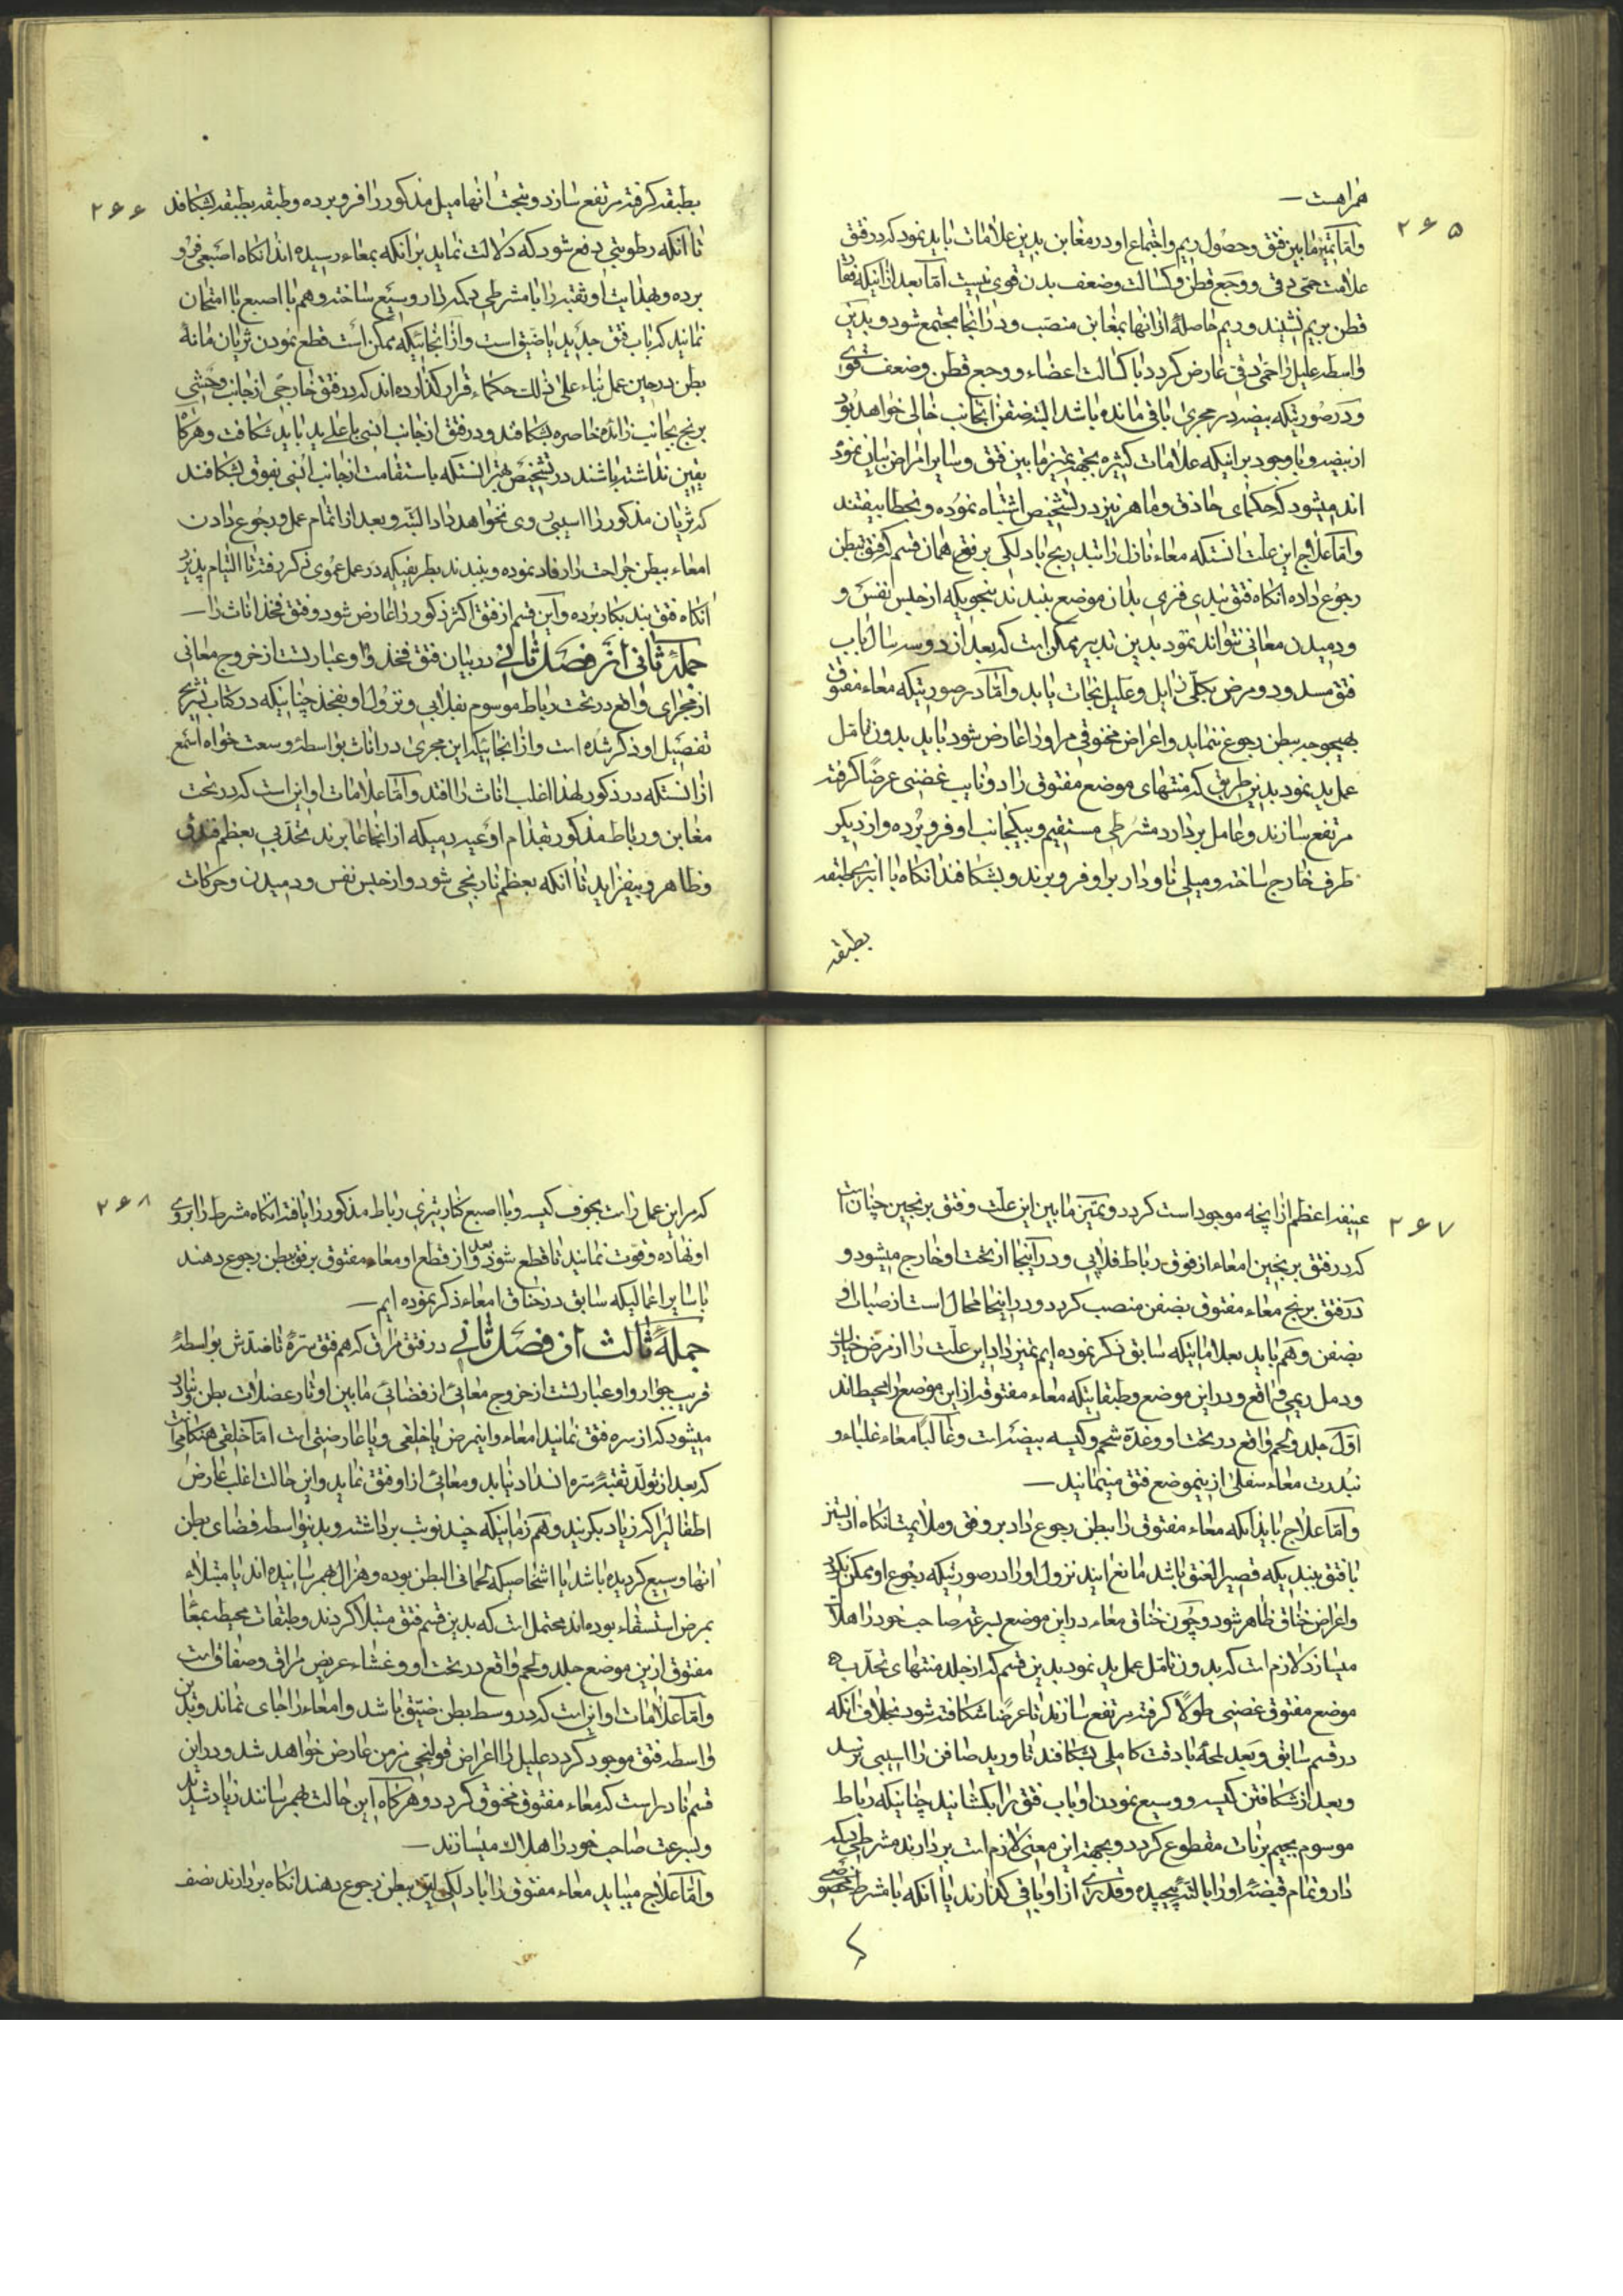 همراهست
۲۶۵
و اما تمیز مابین فتق و حصول ریم و اجتماع او در مغابن بدین علامات باید نمود که در فتق
علامت حمی دقی و وجع قطن و کسالت و ضعف بدن قوی نیست اما بعد از اینکه
قطن بریم نشیند و ریم حاصلهٔ از آنها بمغابن منصب و در آنجا مجتمع شود و بدین
واسطه علیل را حمی دقی عارض کردد با کسالت اعضاء و وجع قطن و ضعف قوای
و در صورتیکه بیضه در مجری باقی مانده باشد البته صفن آنجانب خالی خواهد بود
از بیضه و با وجود بر اینکه علامات کثیره بجهة تمیز مابین فتق و سایر امراض بیان نموده
اند میشود که حکمای حاذق و ماهر نیز در تشخیص اشتباه نموده و بخطا بیفتند
و اما علاج این علت آنستکه معاء نازل را بتدریج با دلکی برفق همان قسم که فتق ببطن
رجوع داده آنکاه فتق بندی فنری بدان موضع ببندند بنحویکه از حبس نفس و
و دمیدن معائی نتواند نمود بدین تدبیر ممکن است که بعد از دو سه سال باب
فتق مسدود و مرض بکلی زایل و علیل نجات یابد و اما در صورتیکه معاء مفتوق
بهیچوجه ببطن رجوع ننماید و اعراض مخنوقی مر او را عارض شود باید بدون تأمل
عمل ید نمود بدین طریق که منتهای موضع مفتوق را دو نایب غضنی عرضاً کرفته
مرتفع سازند و عامل بردارد مشرطی مستقیم و بیکجانب او فرو برده و از دیکر
طرف خارج ساخته و میلی ناودار براو فرو برند و بشکافند آنکاه با انبری طبقه
بطبقه
۲۶۶
بطبقه کرفته مرتفع سازد و بتحت آنها میل مذکور را فرو برده و طبقه بطبقه بشکافد
تا آنکه رطوبتی دفع شود که دلالت نماید بر آنکه بمعاء رسیده اند آنکاه اصبعی فرو
برده و بهدایت او ثقبه را با مشرطی دکمه دار وسیع ساخته و هم با اصبع با امتحان
نمایند که باب فتق جدید یا ضیق است و از آنجائیکه ممکن است قطع نمودن شریان مانهٔ
بطن در حین عمل بناء علی ذلک حکماء قرار کذارده اند که در فتق خارجی از جانب وحشی
برنج بجانب زائدهٔ خاصره بشکافند و در فتق از جانب انسی باعلی ید باید شکافت و هرکاه
یقین نداشته باشند در تشخیص بهتر آنستکه باستقامت از جانب انسی بفوق بشکافند
که شریان مذکور را آسیبی روی نخواهد داد البته و بعد از اتمام عمل و رجوع دادن
امعاء ببطن جراحت را رفاد نموده و ببندند بطریقیکه در عمل عموی ذکر رفته تا التیام پذیرد
آنکاه فتق بند بکار برده و این قسم از فتق اکثر ذکور را عارض شود و فتق فخذ اناث را
جملهٔ ثانی از فصل ثانی در بیان فتق فخذ و او عبارتست از خروج معائی
از مجرای واقع در تحت رباط موسوم بفلابی و نزول او بفخذ چنانیکه در کتاب تشریح
تفصیل او ذکر شده است و از آنجائیکه این مجری در اناث بواسطهٔ وسعت خواه اسمع
از آنستکه در ذکور لهذا اغلب اناث را افتد و اما علامات او این است که در تحت
مغابن و رباط مذکور بقدام او غیر دمیکه از آنجا عابرند تحدبی بعظم فندقی
و ظاهر و بیفزاید تا آنکه بعظم نارنجی شود و از حبس نفس و دمیدن و حرکات
۲۶۷
عنیفه اعظم از آنچه موجود است کردد و تمیز مابین این علت و فتق برنجین چنان است
که در فتق برنجین امعاء از فوق رباط فلابی و در آنجا از تحت او خارج میشود و
در فتق برنج معاء مفتوق بصفن منصب کردد و در اینجا محال است انصباب او
بصفن و هم باید بعلاماتیکه سابق ذکر نموده ایم تمیز داد این علت را از مرض خیارک
و دمل ریمی واقع در این موضع و طبقاتیکه معاء مفتوقه از این موضع را محیط اند
اول جلد و لحم واقع در تحت او و غدهٔ شحم و کیسه بیضه است و غالباً معاء غلیاء و
بندرت معاء سفلی از ینموضع فتق مینمانید
و اما علاج باید آنکه معاء مفتوق را ببطن رجوع داد برفق و ملایمت آنکاه از بستن
با فتق بندیکه قصیر العنق باشد مانع ایند نزول او را در صورتیکه رجوع او ممکن نکردد
و اعراض خناق ظاهر شود و چون خناق معاء در این موضع بسرعت صاحب خود را هلاک
میسازد لازم است که بدون تامل عمل ید نمود بدین قسم که از جلد منتهای تحدب
موضع مفتوق غضنی طولاً کرفته مرتفع سازند تا عرضاً شکافته شود بخلاف آنکه
در قسم سابق و بعد لحمه با دقت کاملی بشکافند تا ورید صافن را آسیبی نرسد
و بعد از شکافتن کیسه و وسیع نمودن او باب فتق را بکشانید چنانیکه رباط
موسوم بجیم برنات مقطوع کردد و بجهة این معنی لازم است بردارند مشرطی دکمه
دار و تمام قبضهٔ او را با لته پیچیده و قدری از او باقی کذارند یا آنکه با مشرط مخصوصی
که
۲۶۸
که مر این عمل راست بجوف کیسه و با اصبع کنار تیزی رباط مذکور را یافته آنکاه مشرط را بروی
او نهاده و قوت نمایند تا قطع شود و بعد از قطع او معاء مفتوق برفق ببطن رجوع دهند
با سایر اعمالیکه سابق در خناق امعاء ذکر نموده ایم
جملهٔ ثالث از فصل ثانی در فتق مراق که هم فتق سره نامندش بواسطهٔ
قریب جوار و او عبارتست از خروج معائی از فضائی مابین اوتار عضلات بطن و نادر
میشود که از سره فتق نمایند امعاء و اینمرض یا خلقی و یا عارضی است اما خلقی هنکامی است
که بعد از تولد ثقبهٔ سره انسداد نیابد و معائی از او فتق نماید و این حالت اغلب عارض
اطفالیرا که زیاد بکریند و هم زمانیکه چند نوبت برداشته و بدینواسطه فضای بطن
آنها وسیع کردیده باشد یا اشخاصیکه لحمانی البطن بوده و هزال بهم رسانیده اند یا مبتلاء
بمرض استسقاء بوده اند محتمل است که بدین قسم فتق مبتلا کردند و طبقات محیطه بمعاء
مفتوق از ین موضع جلد و لحم واقع در تحت او و غشاء عریض مراق و صفاق است
و اما علامات او این است که در وسط بطن ضیق باشد و امعاء را جای نماند و بدین
واسطه فتق موجود کردد علیل را اعراض قولنجی مزمن عارض خواهد شد و در این
قسم نادر است که معاء مفتوق مخنوق کردد و هرکاه این حالت بهم رسانند زیاد شدید
و بسرعت صاحب خود را هلاک میسازند
و اما علاج میباید معاء مفتوق را با دلکی ببطن رجوع دهند آنکاه بردارند نصف